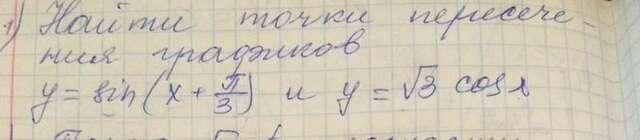 1) Найти точки пересече-
ния графиков
y = sin(x + π/3) и y = √3 cos x